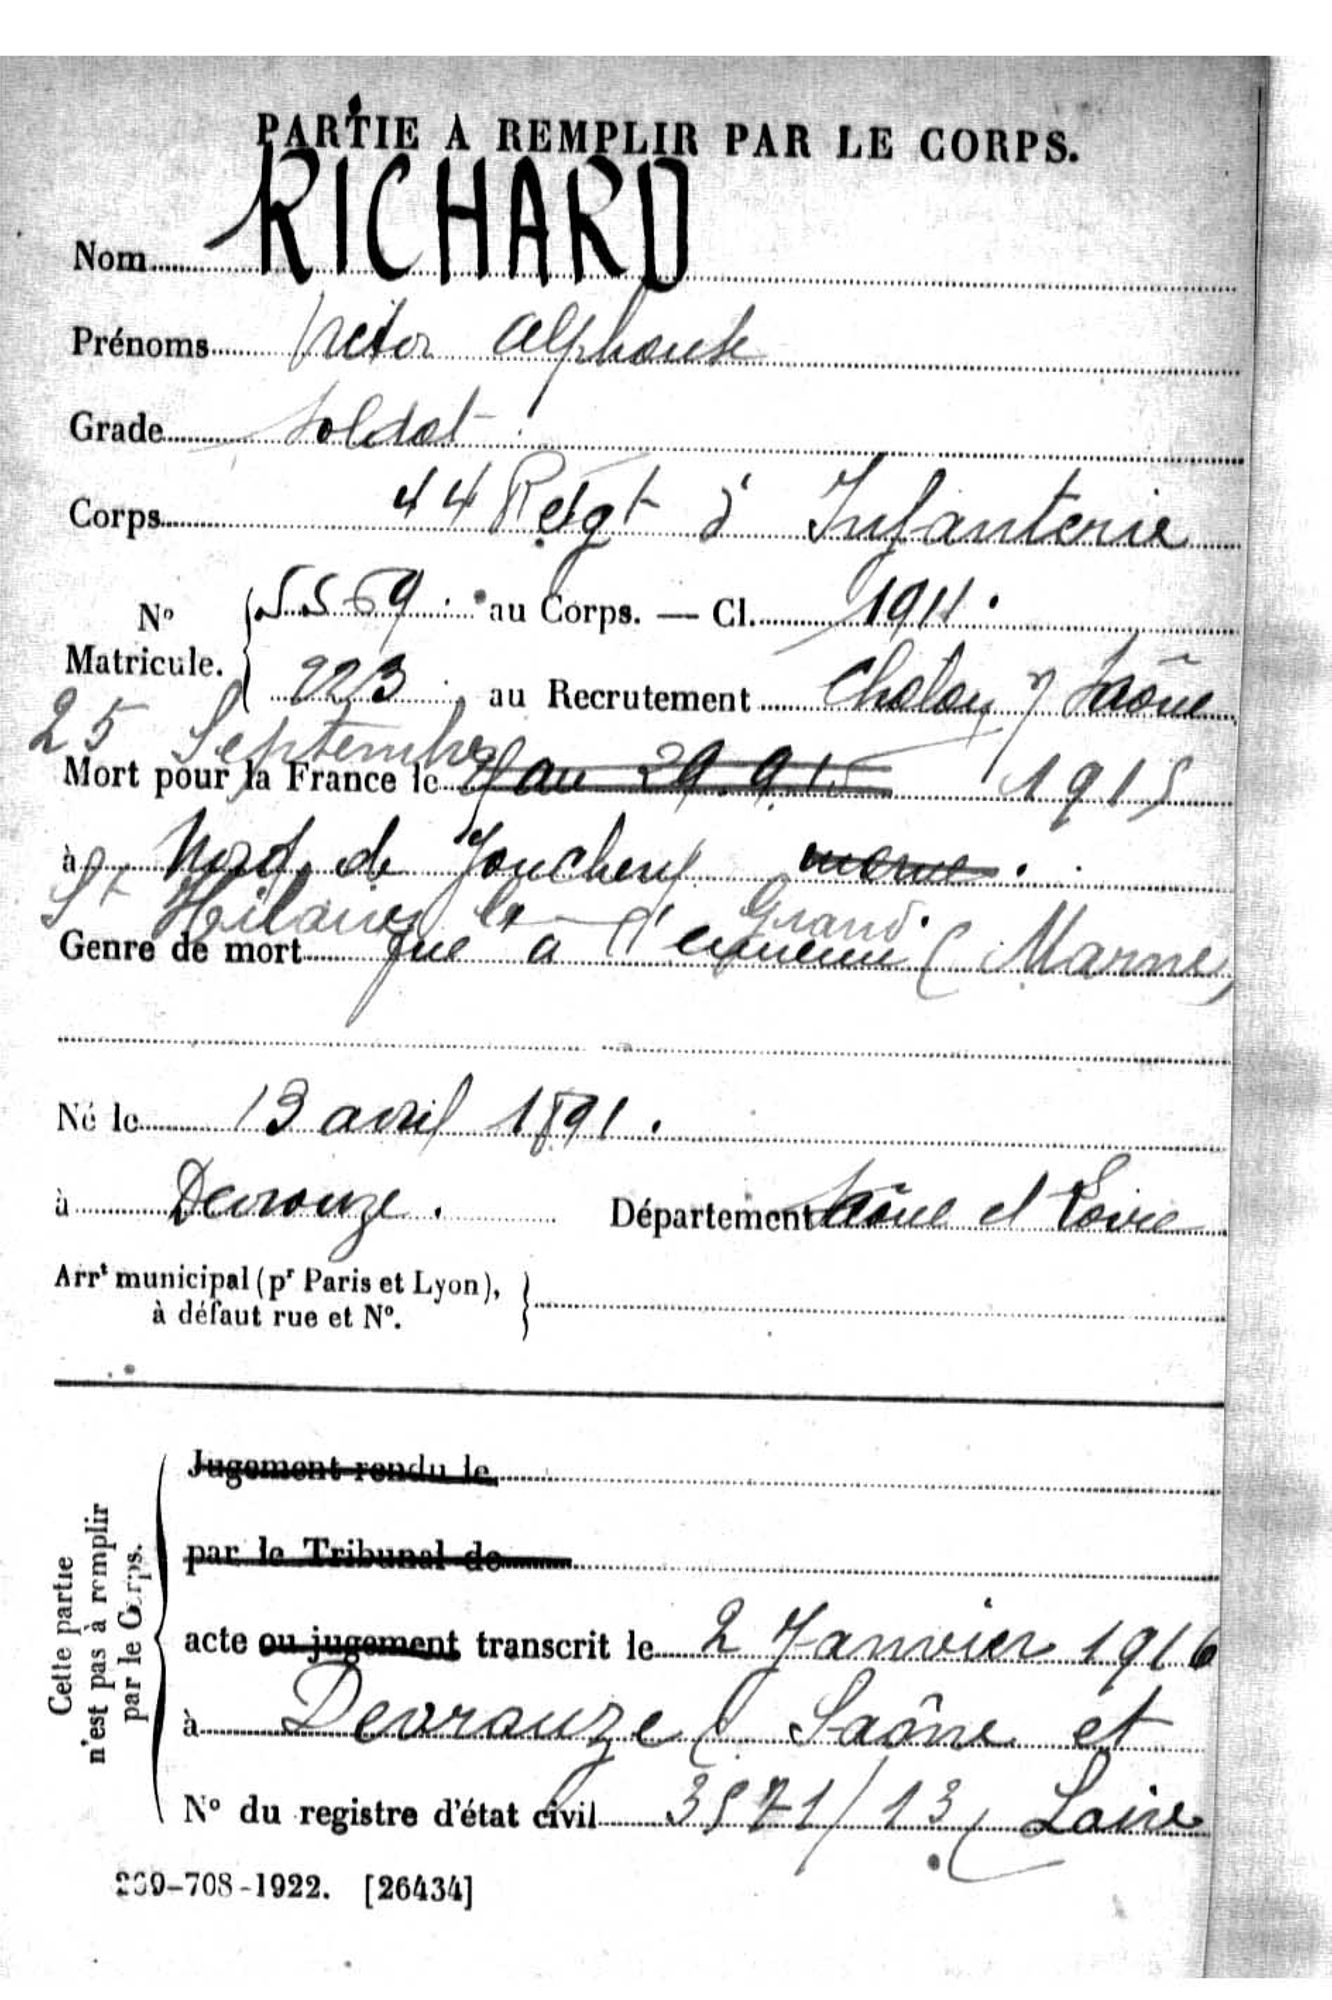 PARTIE A REMPLIR PAR LE CORPS.
Nom RICHARD
Prénoms Victor Alphonse
Grade Soldat
Corps 44 Reigt d'Infanterie
N° Matricule. { 5569. au Corps. — Cl. 1911.
223. au Recrutement Chalon s/ Saône
25 Septembre
Mort pour la France le au 29.9.15 1915
à Nord de Jonchery marne.
St Hilaire le Grand.
Genre de mort Tué à l'ennemi (Marne)
Né le 13 avril 1891.
à Devrouze. Département Saône et Loire
Arrt municipal (pr Paris et Lyon), }
à défaut rue et N°.
Cette partie
n'est pas à remplir
par le Corps.
Jugement rendu le
par le Tribunal de
acte ou jugement transcrit le 2 Janvier 1916
à Devrouze (Saône et
N° du registre d'état civil 3571/13 Loire
269-708-1922. [26434]